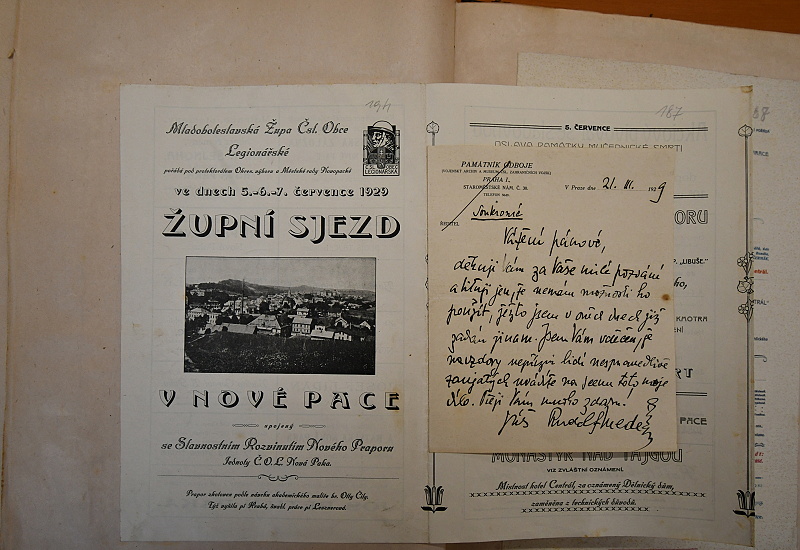 194
Mladoboleslavská Župa Čsl. Obce
Legionářské
pořádá pod protektorátem Okres. výboru a Městské rady Novopacké
ve dnech 5.-6.-7. července 1929
ŽUPNÍ SJEZD
V NOVÉ PACE
spojený
se Slavnostním Rozvinutím Nového Praporu
Jednoty Č.O.L. Nová Paka.
Prapor zhotoven podle návrhu akademického malíře br. Olly Čihy.
ČSL. OBEC
LEGIONÁŘSKÁ
187
5. ČERVENCE
OSLAVA PAMÁTKY MUČEDNICKÉ SMRTI
PAMÁTNÍK ODBOJE
PRAHA I.,
STAROMĚSTSKÉ NÁM. Č. 30.
ŘEDITEL
V Praze dne 21. III. 1929
Soukromě
Vážení pánové,
děkuji Vám za Vaše milé pozvání
a lituji jen, že nemám možnosti ho
použít, ježto jsem v oněch dnech již
zadán jinam. Jsem Vám vděčen, že
navzdory nepřízni lidí nespravedlivě
zaujatých uvádíte na scenu toto moje
dílo. Přeji Vám mnoho zdaru!
Váš Rudolf Medek
ORU
"LIBUŠE."
KMOTRA
PACE
MONASTÝR NAD TAJGOU
VIZ ZVLÁŠTNÍ OZNÁMENÍ.
Místnost hotel Centrál, za oznámený Dělnický dům,
zaměněna z technických důvodů.